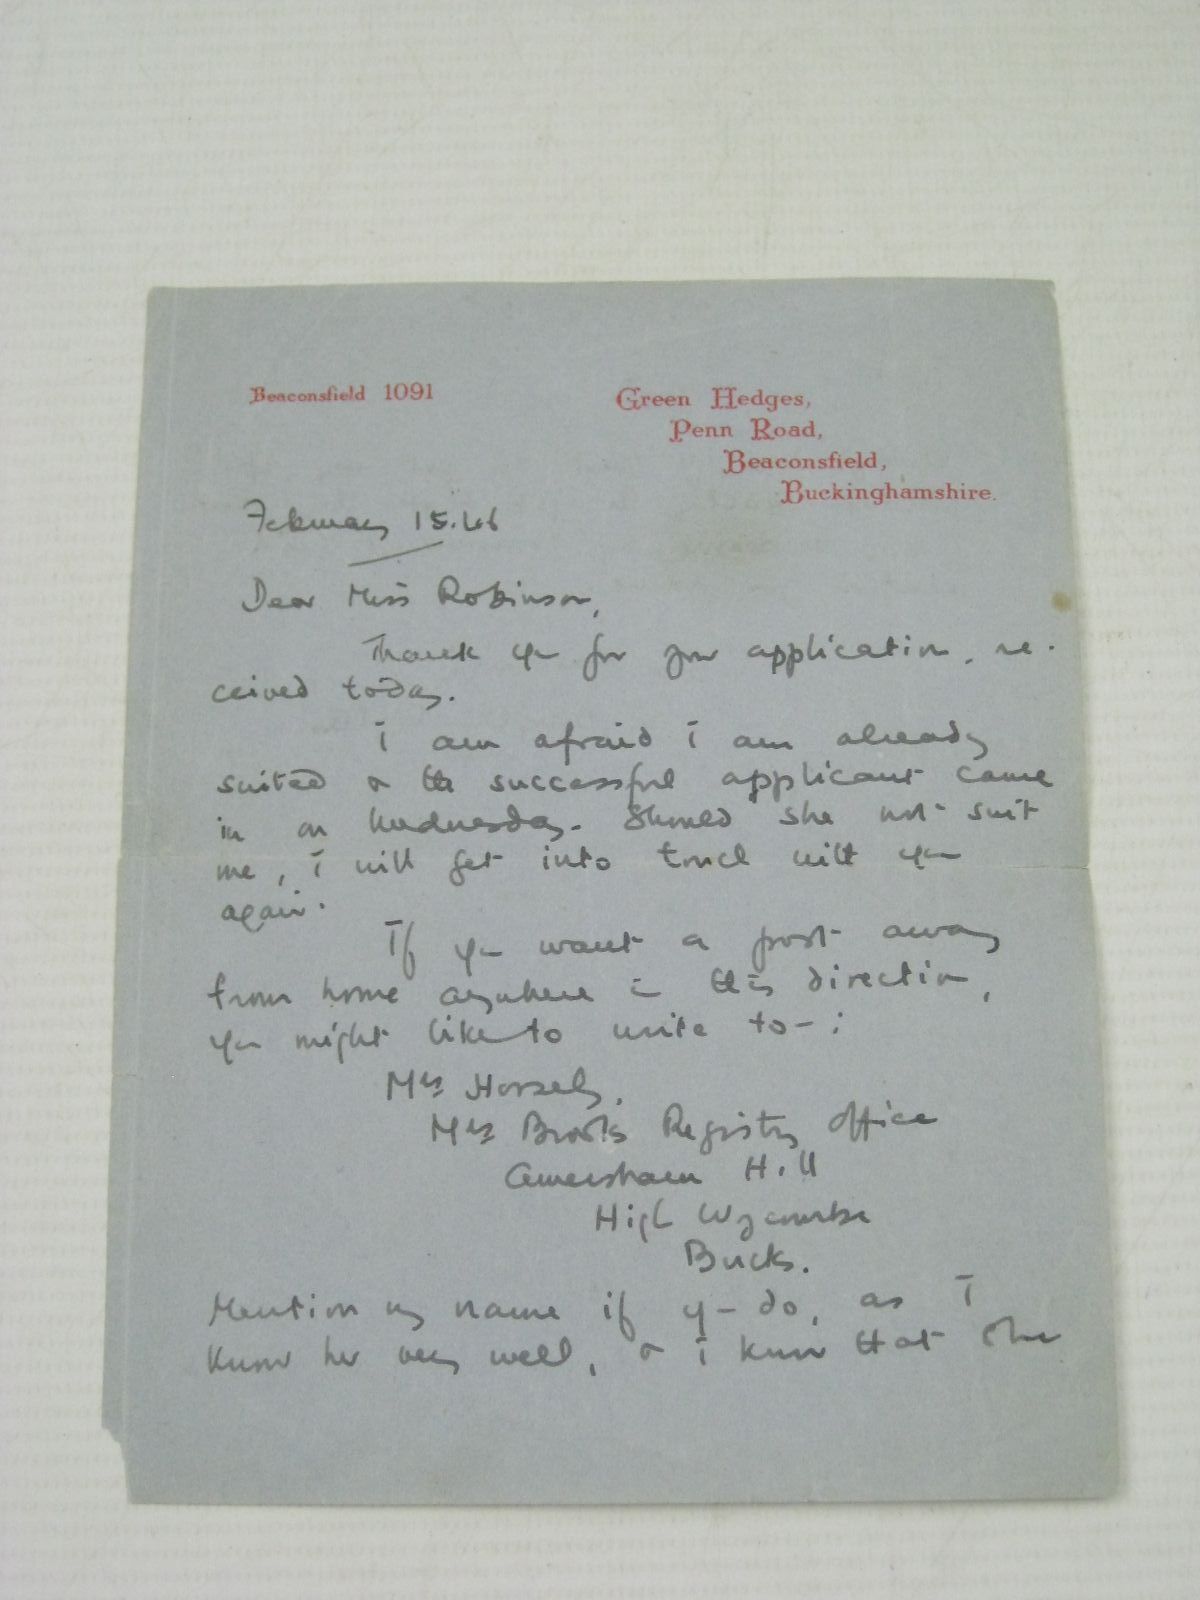 Beaconsfield 1091
Green Hedges,
Penn Road,
Beaconsfield,
Buckinghamshire.
February 15.46
Dear Miss Robinson,
Thank you for your application, re-
ceived today.
I am afraid I am already
suited & the successful applicant came
in on Wednesday. Should she not suit
me, I will get into touch with you
again.
If you want a post away
from home anywhere in this direction,
you might like to write to - :
Mrs Horsely,
Mrs Brooks Registry Office
Amersham Hill
High Wycombe
Bucks.
Mention my name if you do, as I
know her very well, & I know that she